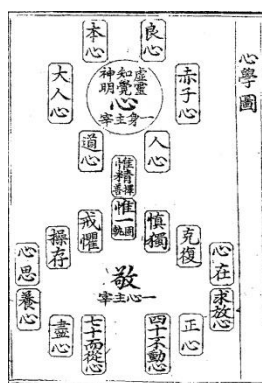 心學圖
良心
本心
赤子心
大人心
虛靈
知覺
神明
心
一身主宰
人心
道心
惟精
擇善
惟一
固執
慎獨
戒懼
克復
操存
心在
心思
求放心
養心
敬
一心主宰
四十不動心
七十而從心
正心
盡心